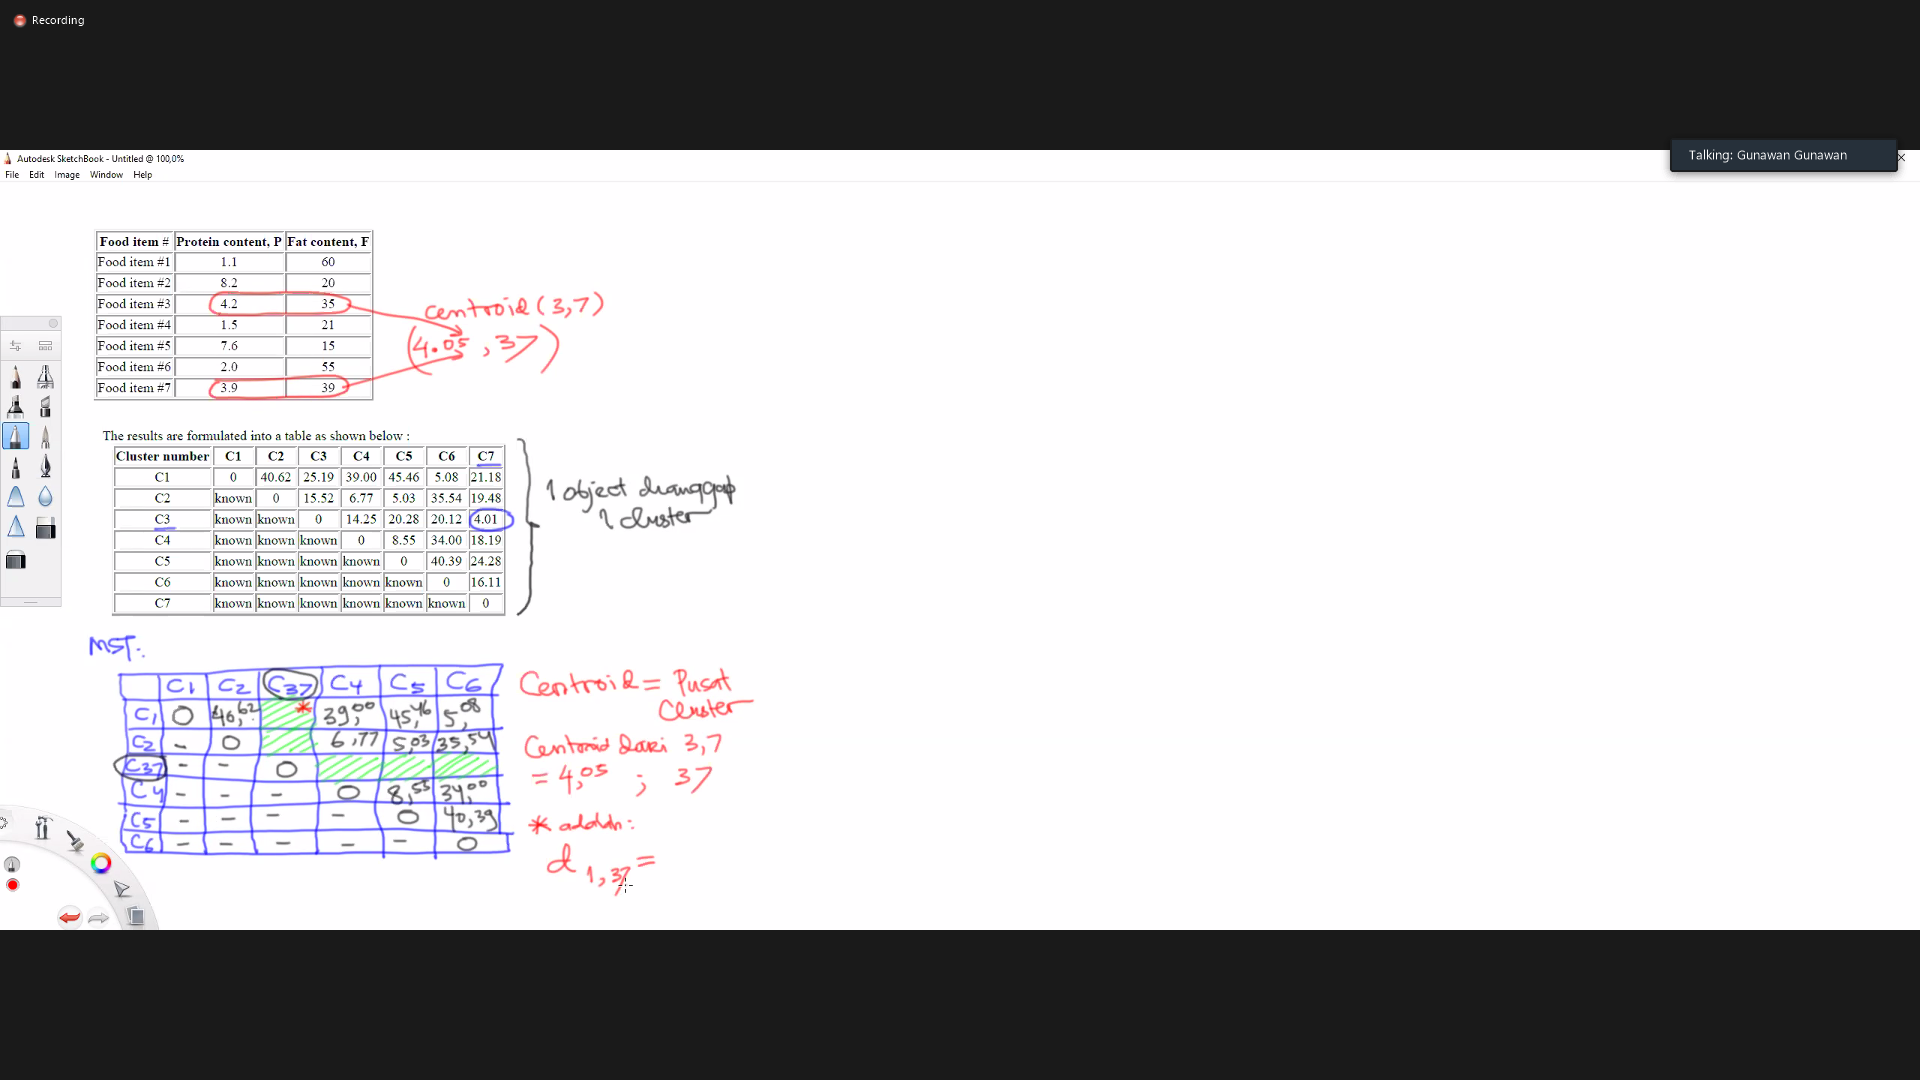 Recording
Talking: Gunawan Gunawan
Autodesk SketchBook - Untitled @ 100,0%
File Edit Image Window Help
Food item # Protein content, P Fat content, F
Food item #1 1.1 60
Food item #2 8.2 20
Food item #3 4.2 35
Food item #4 1.5 21
Food item #5 7.6 15
Food item #6 2.0 55
Food item #7 3.9 39
centroid (3,7)
(4.05, 37)
The results are formulated into a table as shown below :
Cluster number C1 C2 C3 C4 C5 C6 C7
C1 0 40.62 25.19 39.00 45.46 5.08 21.18
C2 known 0 15.52 6.77 5.03 35.54 19.48
C3 known known 0 14.25 20.28 20.12 4.01
C4 known known known 0 8.55 34.00 18.19
C5 known known known known 0 40.39 24.28
C6 known known known known known 0 16.11
C7 known known known known known known 0
1 object dianggap
1 cluster
MST:
C1 C2 C37 C4 C5 C6
C1 0 40,62 * 39,00 45,46 5,08
C2 - 0 6,77 5,03 35,54
C37 - - 0
C4 - - - 0 8,55 34,00
C5 - - - - 0 40,39
C6 - - - - - 0
Centroid = Pusat
Cluster
Centroid dari 3,7
= 4,05 ; 37
* adalah:
d 1,37 =